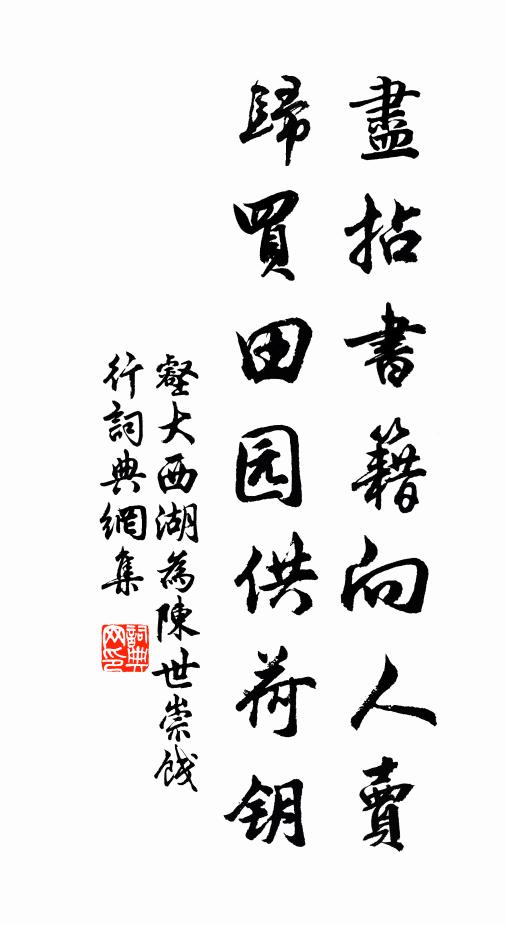 盡拈書籍向人賣
歸買田园供荷钥
壑大西湖為陳世崇饯
行詞典網集
詞典
网印